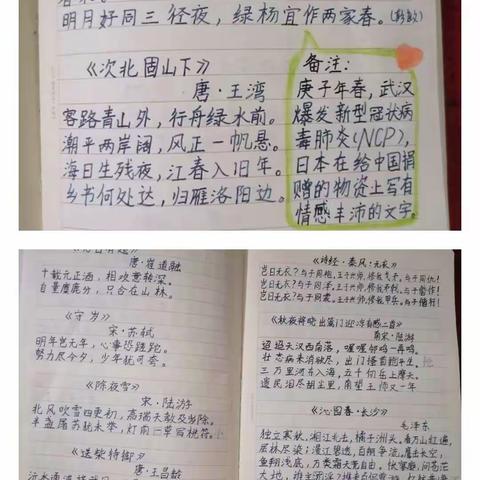 明月好同三径夜，绿杨宜作两家春。
《次北固山下》
唐·王湾
客路青山外，行舟绿水前。
潮平两岸阔，风正一帆悬。
海日生残夜，江春入旧年。
乡书何处达，归雁洛阳边。
备注：
庚子年春，武汉
爆发新型冠状病
毒肺炎(NCP)，
日本在给中国捐
赠的物资上写有
情感丰沛的文字。
唐·崔道融
十载元正酒，相欢意转深。
自量麋鹿分，只合在山林。
《守岁》
宋·苏轼
明年岂无年，心事恐蹉跎。
努力尽今夕，少年犹可夸。
《除夜雪》
宋·陆游
北风吹雪四更初，嘉瑞天教及岁除。
半盏屠苏犹未举，灯前小草写桃符。
《送柴侍御》
唐·王昌龄
《诗经·秦风·无衣》
岂曰无衣？与子同袍。王于兴师，修我戈矛。与子同仇！
岂曰无衣？与子同泽。王于兴师，修我矛戟。与子偕作！
岂曰无衣？与子同裳。王于兴师，修我甲兵。与子偕行！
《秋夜将晓出篱门迎凉有感二首》
南宋·陆游
迢迢天汉西南落，喔喔邻鸡一再鸣。
壮志病来消欲尽，出门搔首怆平生。
三万里河东入海，五千仞岳上摩天。
遗民泪尽胡尘里，南望王师又一年
《沁园春·长沙》
毛泽东
独立寒秋，湘江北去，橘子洲头。看万山红遍，
层林尽染；漫江碧透，百舸争流。鹰击长空，
鱼翔浅底，万类霜天竞自由。怅寥廓，问苍茫
大地，谁主沉浮？